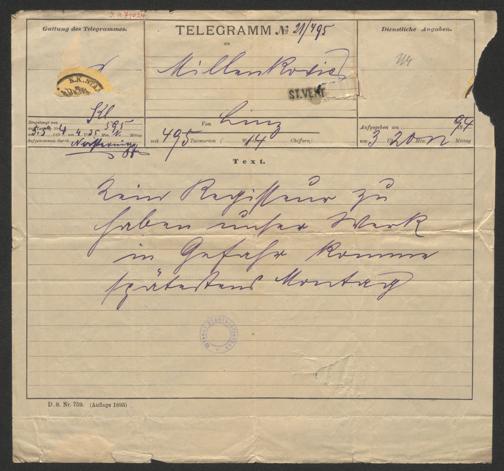 Gattung des Telegrammes.
TELEGRAMM № 21/495
an
Dienstliche Angaben.
Millenkovics
ST. VEIT
Von Linz
495 Taxworten / 14 Chiffern
Aufgegeben am 9/4
um 3 20 Mittag
Aufgenommen durch
Text.
Kein Regisseur zu
haben unser Werk
in Gefahr komme
spätestens Montag
D. S. Nr. 759. (Auflage 1895)